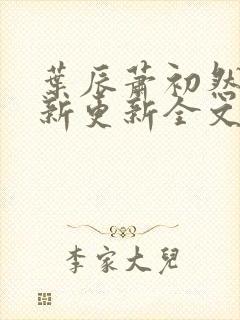 葉辰蕭初然
新更新全文
李家大兒